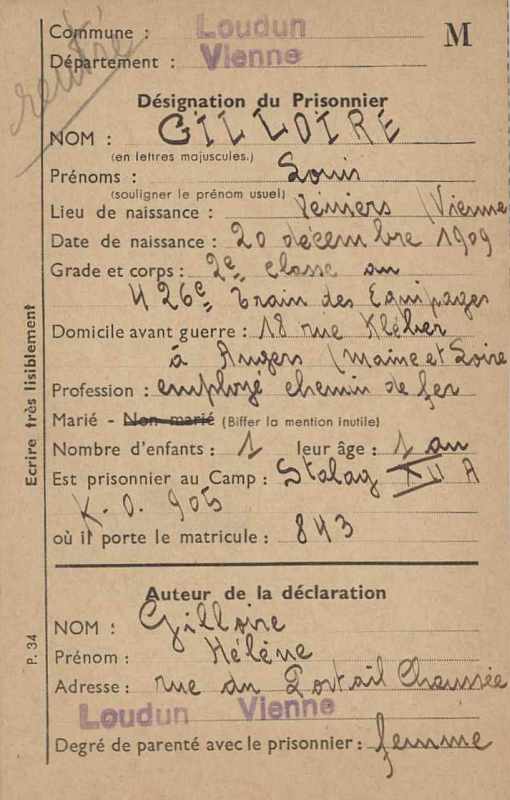 Commune : Loudun M
Département : Vienne
rentré
Désignation du Prisonnier
NOM : GILLOIRE
(en lettres majuscules.)
Prénoms : Louis
(souligner le prénom usuel)
Lieu de naissance : Veniers (Vienne
Date de naissance : 20 décembre 1909
Grade et corps : 2e classe au
426e Train des Equipages
Domicile avant guerre : 18 rue Kléber
à Angers (Maine et Loire
Profession : employé chemin de fer
Marié - Non marié (Biffer la mention inutile)
Nombre d'enfants : 1 leur âge : 1 an
Est prisonnier au Camp : Stalag XII A
K.O. 905
où il porte le matricule : 843
Ecrire très lisiblement
Auteur de la déclaration
NOM : Gilloire
Prénom : Hélène
Adresse : rue du Portail Chaussée
Loudun Vienne
Degré de parenté avec le prisonnier : femme
P. 34